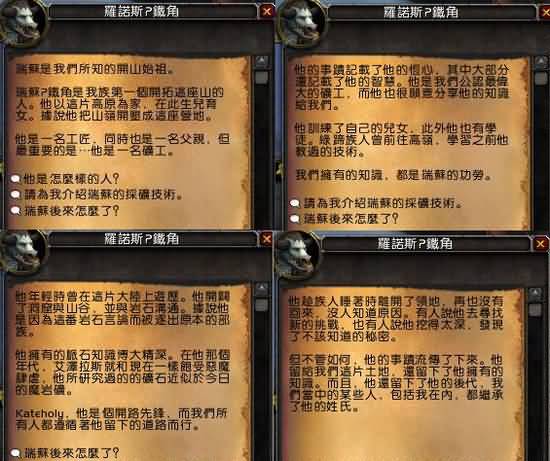 羅諾斯?鐵角
瑞蘇是我們所知的開山始祖。
瑞蘇?鐵角是我族第一個開拓這座山的
人。他以這片高原為家，在此生兒育
女。據說他把山嶺開鑿成這座營地。
他是一名工匠，同時也是一名父親，但
最重要的是…他是一名礦工。
他是怎麼樣的人？
請為我介紹瑞蘇的採礦技術。
瑞蘇後來怎麼了？
羅諾斯?鐵角
他的事蹟記載了他的恆心，其中大部分
還記載了他的智慧。他是我們公認最偉
大的礦工，而他也很願意分享他的知識
給我們。
他訓練了自己的兒女，此外他也有學
徒。綠蹄族人曾前往高嶺，學習之前他
教過的技術。
我們擁有的知識，都是瑞蘇的功勞。
請為我介紹瑞蘇的採礦技術。
瑞蘇後來怎麼了？
羅諾斯?鐵角
他年輕時曾在這片大陸上遊歷。他開闢
了洞窟與山谷，並與岩石溝通。據說他
是因為這番岩石言論而被逐出原本的部
族。
他擁有的脈石知識博大精深。在他那個
年代，艾澤拉斯就和現在一樣飽受惡魔
肆虐，他所研究過的的礦石近似於今日
的魔岩礦。
Kateholy，他是個開路先鋒，而我們所
有人都遵循著他留下的道路而行。
瑞蘇後來怎麼了？
羅諾斯?鐵角
他趁族人睡著時離開了領地，再也沒有
回來，沒人知道原因。有人說他去尋找
新的挑戰，也有人說他挖得太深，發現
了不該知道的秘密。
但不管如何，他的事蹟流傳了下來。他
留給我們這片土地，還留下了他擁有的
知識。而且，他還留下了他的後代，我
們當中的某些人，包括我在內，都繼承
了他的姓氏。